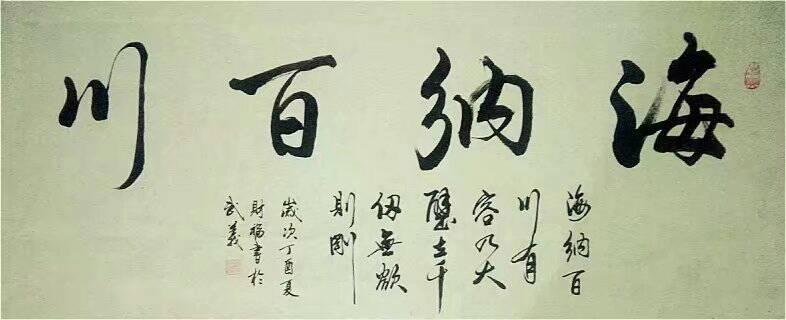 海納百川
海納百
川有
容乃大
壁立千
仞無欲
則剛
歲次丁酉夏
財福書於
武義